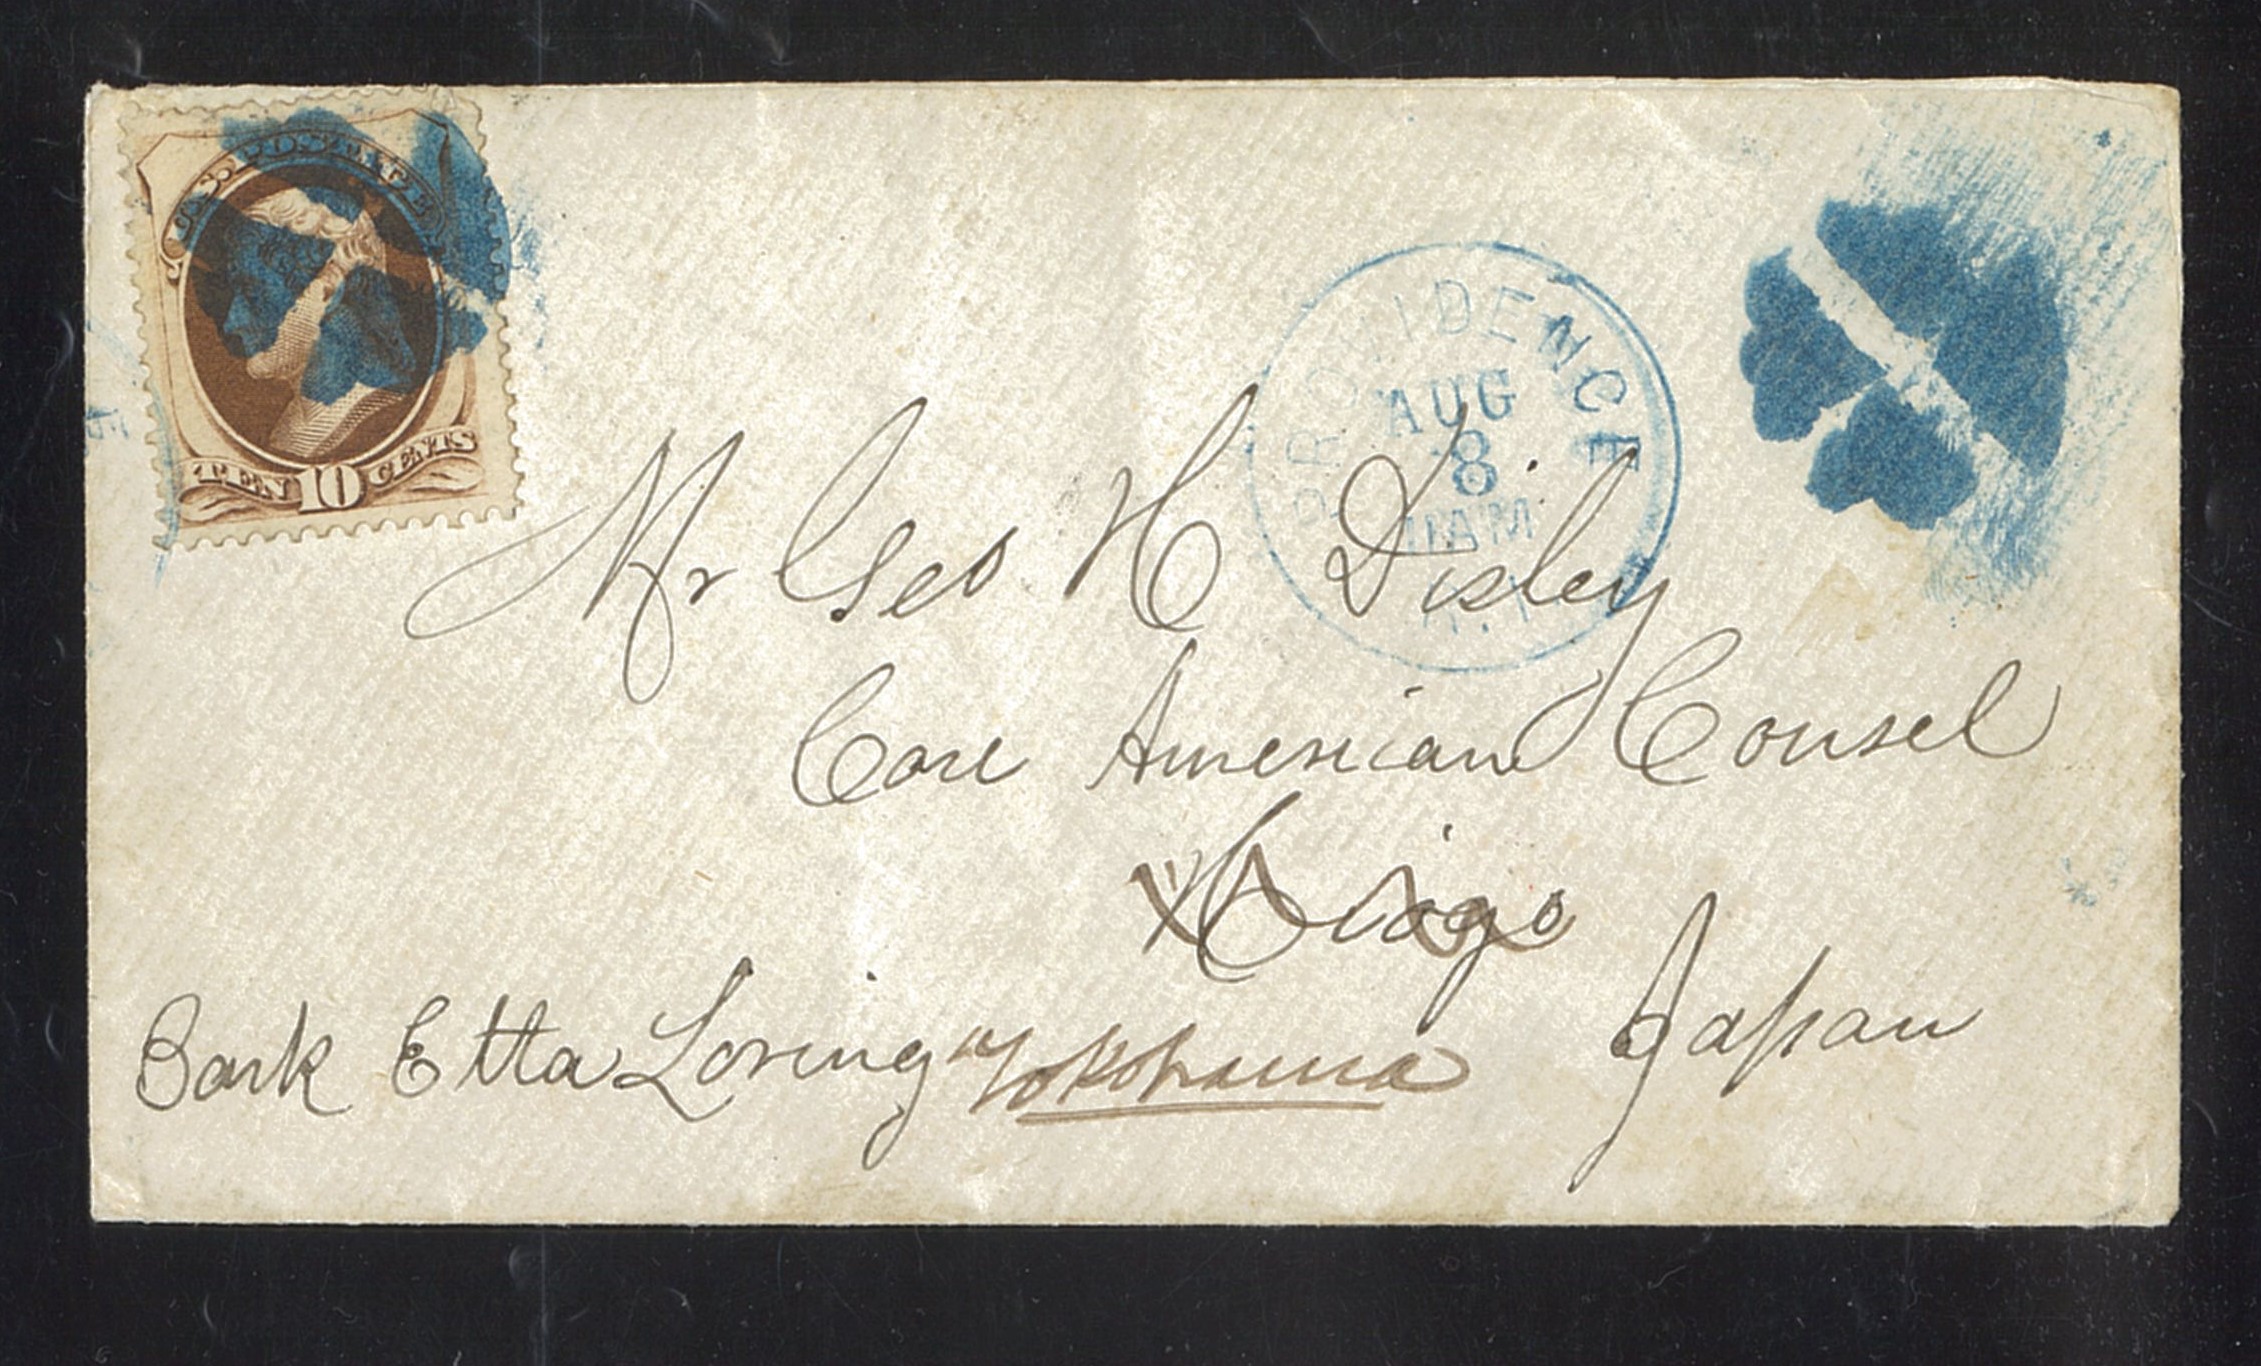 U.S. POSTAGE
TEN 10 CENTS
PROVIDENCE
AUG
8
11 AM
R.I.
Mr Geo H Disley
Care American Consel
Hiogo
Japan
Bark Etta Loring
Yokohama